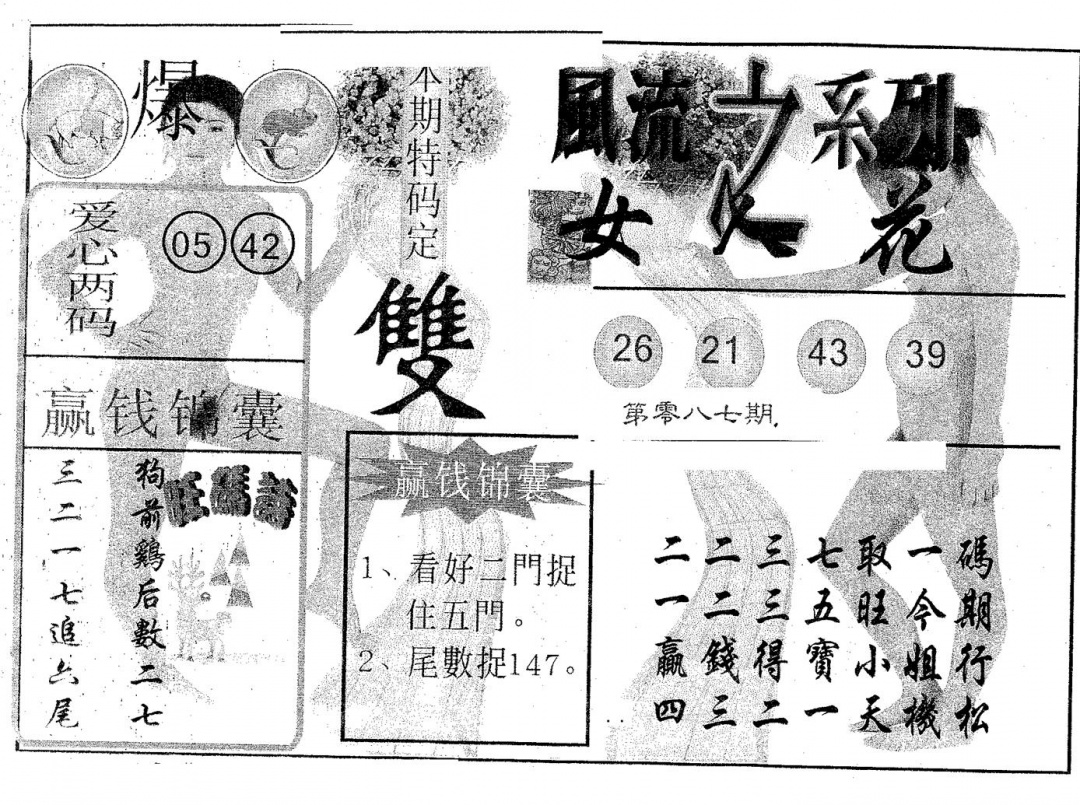 爆
爱心两码
05 42
赢钱锦囊
狗前鷄后數二七
三二一七追六尾
本期特码定
雙
風流女之系列
女人花
26 21 43 39
第零八七期.
赢钱锦囊
1、看好二門捉
住五門。
2、尾數捉147。
碼期行松
一今姐機
取旺小天
七五寶一
三三得二
二二錢三
二一贏四